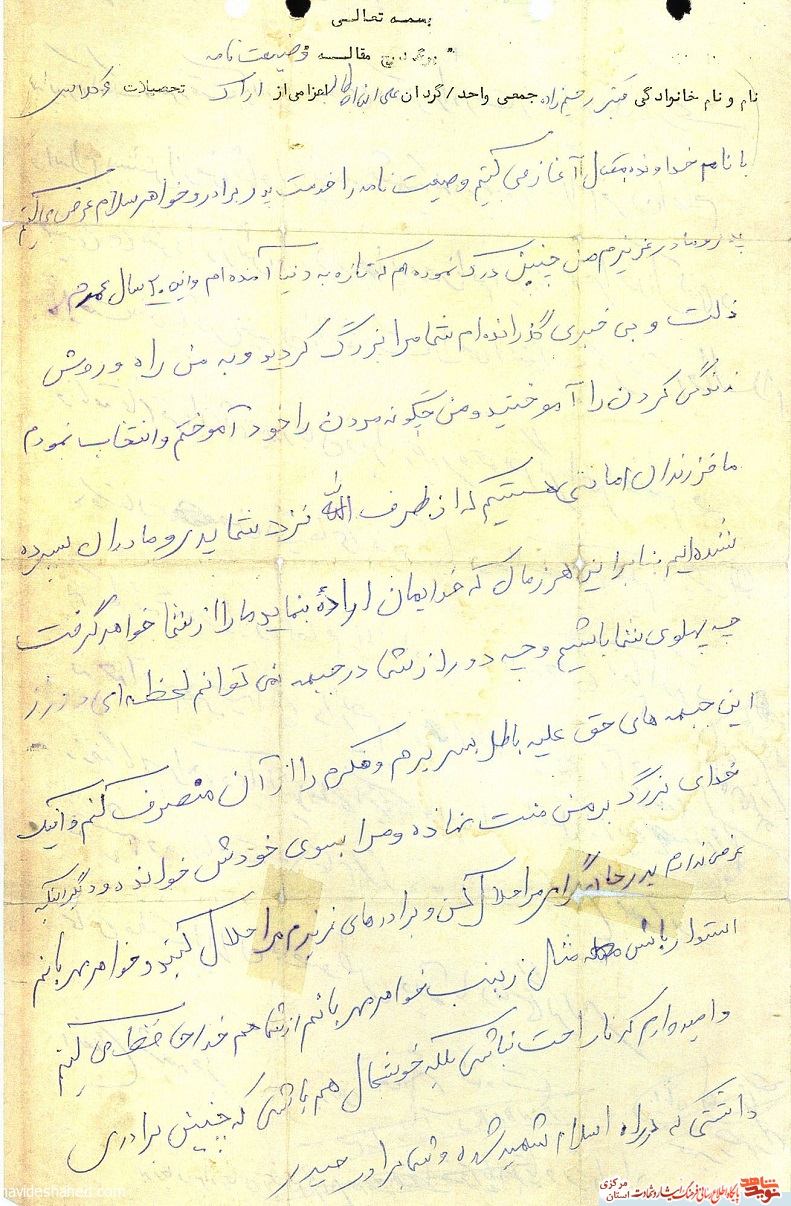 بسمه تعالی
"برگه درج مقاله" وصیعت نامه
نام و نام خانوادگی قنبر رحیم زاده جمعی واحد/گردان علی ابن ابیطالب اعزامی از اراک تحصیلات
با نام خداوند متعال آغاز می کنیم وصیعت نامه را خدمت پدر برادر و خواهر سلام عرض می کنم
پدر و مادر عزیزم من چنین درک نموده ام که تازه به دنیا آمده ام و این ۲۰ سال عمرم
ذلت و بی خبری گذرانده ام شما مرا بزرگ کردید و به من راه و روش
زندگی کردن را آموختید و من چگونه مردن را خود آموختم و انتخاب نمودم
ما فرزندان امانتی هستیم که از طرف الله نزد شما پدر و مادران سپرده
شده ایم بنابراین هر زمان که خدایمان اراده بنماید ما را از شما خواهد گرفت
چه پهلوی شما باشیم و چه دور از شما در جبهه نمی توانم لحظه ای
این جبهه های حق علیه باطل بسر برم و فکرم را از آن منصرف کنم و اینک
خدای بزرگ بر من منت نهاده و مرا بسوی خودش خوانده و دیگر اینکه
عرضی ندارم پدر جان مرا حلال کن و برادرهای عزیزم مرا حلال کنید و خواهر مهربانم
استوار باش مثال زینب خواهر مهربانم از شما هم خداحافظی می کنیم
و امیدوارم که ناراحت نباشی بلکه خوشحال هم باشی که چنین برادری
داشتی که در راه اسلام شهید شده و شما برادر حیدر
navideshahed.com
نوید شاهد
پایگاه اطلاع رسانی فرهنگ ایثار و شهادت
استان مرکزی